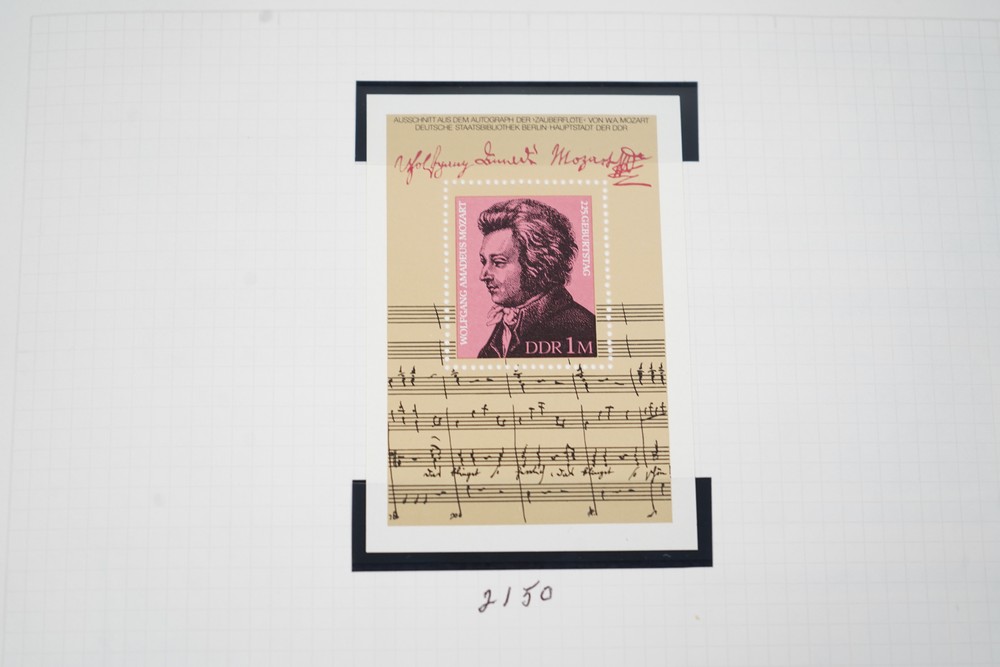 AUSSCHNITT AUS DEM AUTOGRAPH DER »ZAUBERFLÖTE« VON W.A. MOZART
DEUTSCHE STAATSBIBLIOTHEK BERLIN·HAUPTSTADT DER DDR
Wolfgang Amadè Mozart
WOLFGANG AMADEUS MOZART
225. GEBURTSTAG
DDR 1 M
das klinget so herrlich, das klinget so schön
2150